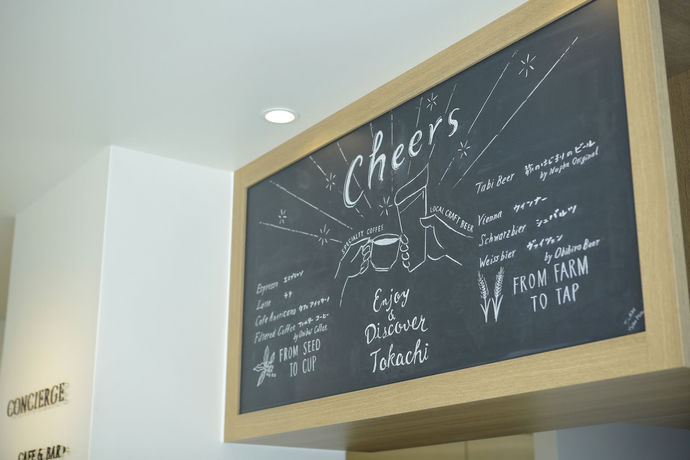 Cheers
SPECIALTY COFFEE
LOCAL CRAFT BEER
Espresso エスプレッソ
Latte ラテ
Cafe Americano カフェ アメリカーノ
Filtered Coffee フィルター コーヒー
FROM SEED
TO CUP
Enjoy
&
Discover
Tokachi
Tabi Beer 旅のはじまりのビール
by Nupka Original
Vienna ウインナー
Schwarzbier シュバルツ
Weissbier ヴァイツェン
by Obihiro Beer
FROM FARM
TO TAP
CONCIERGE
CAFE & BAR